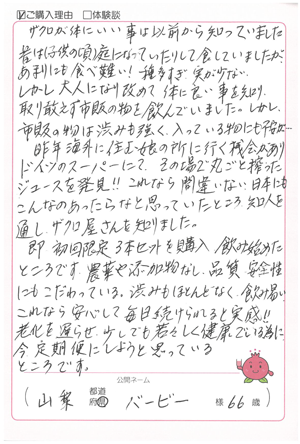 ☑ご購入理由 □体験談
ザクロが体にいい事は以前から知っていました
昔は(子供の頃)庭になっていたりして食していましたが、
あまりにも食べ難い!種多すぎ実が少ない。
しかし大人になり改めて体に良い事を知り、
取り敢えず市販の物を飲んでいました。しかし、
市販の物は渋みも強く、入っている物にも不安…
昨年海外に住む娘の所に行く機会があり
ドイツのスーパーにて、その場で丸ごと搾った
ジュースを発見!!これなら間違いない日本にも
こんなのあったらなと思っていたところ知人を
通し、ザクロ屋さんを知りました。
即初回限定3本セットを購入、飲み始めた
ところです。農薬や添加物なし、品質、安全性
にもこだわっている。渋みもほとんどなく、飲み易い
これなら安心して毎日続けられると実感!!
老化を遅らせ、少しでも若々しく健康でいる為に
今定期便にしようと思っている
ところです。
公開ネーム
(山梨 都道府県 バービー 様 66歳)